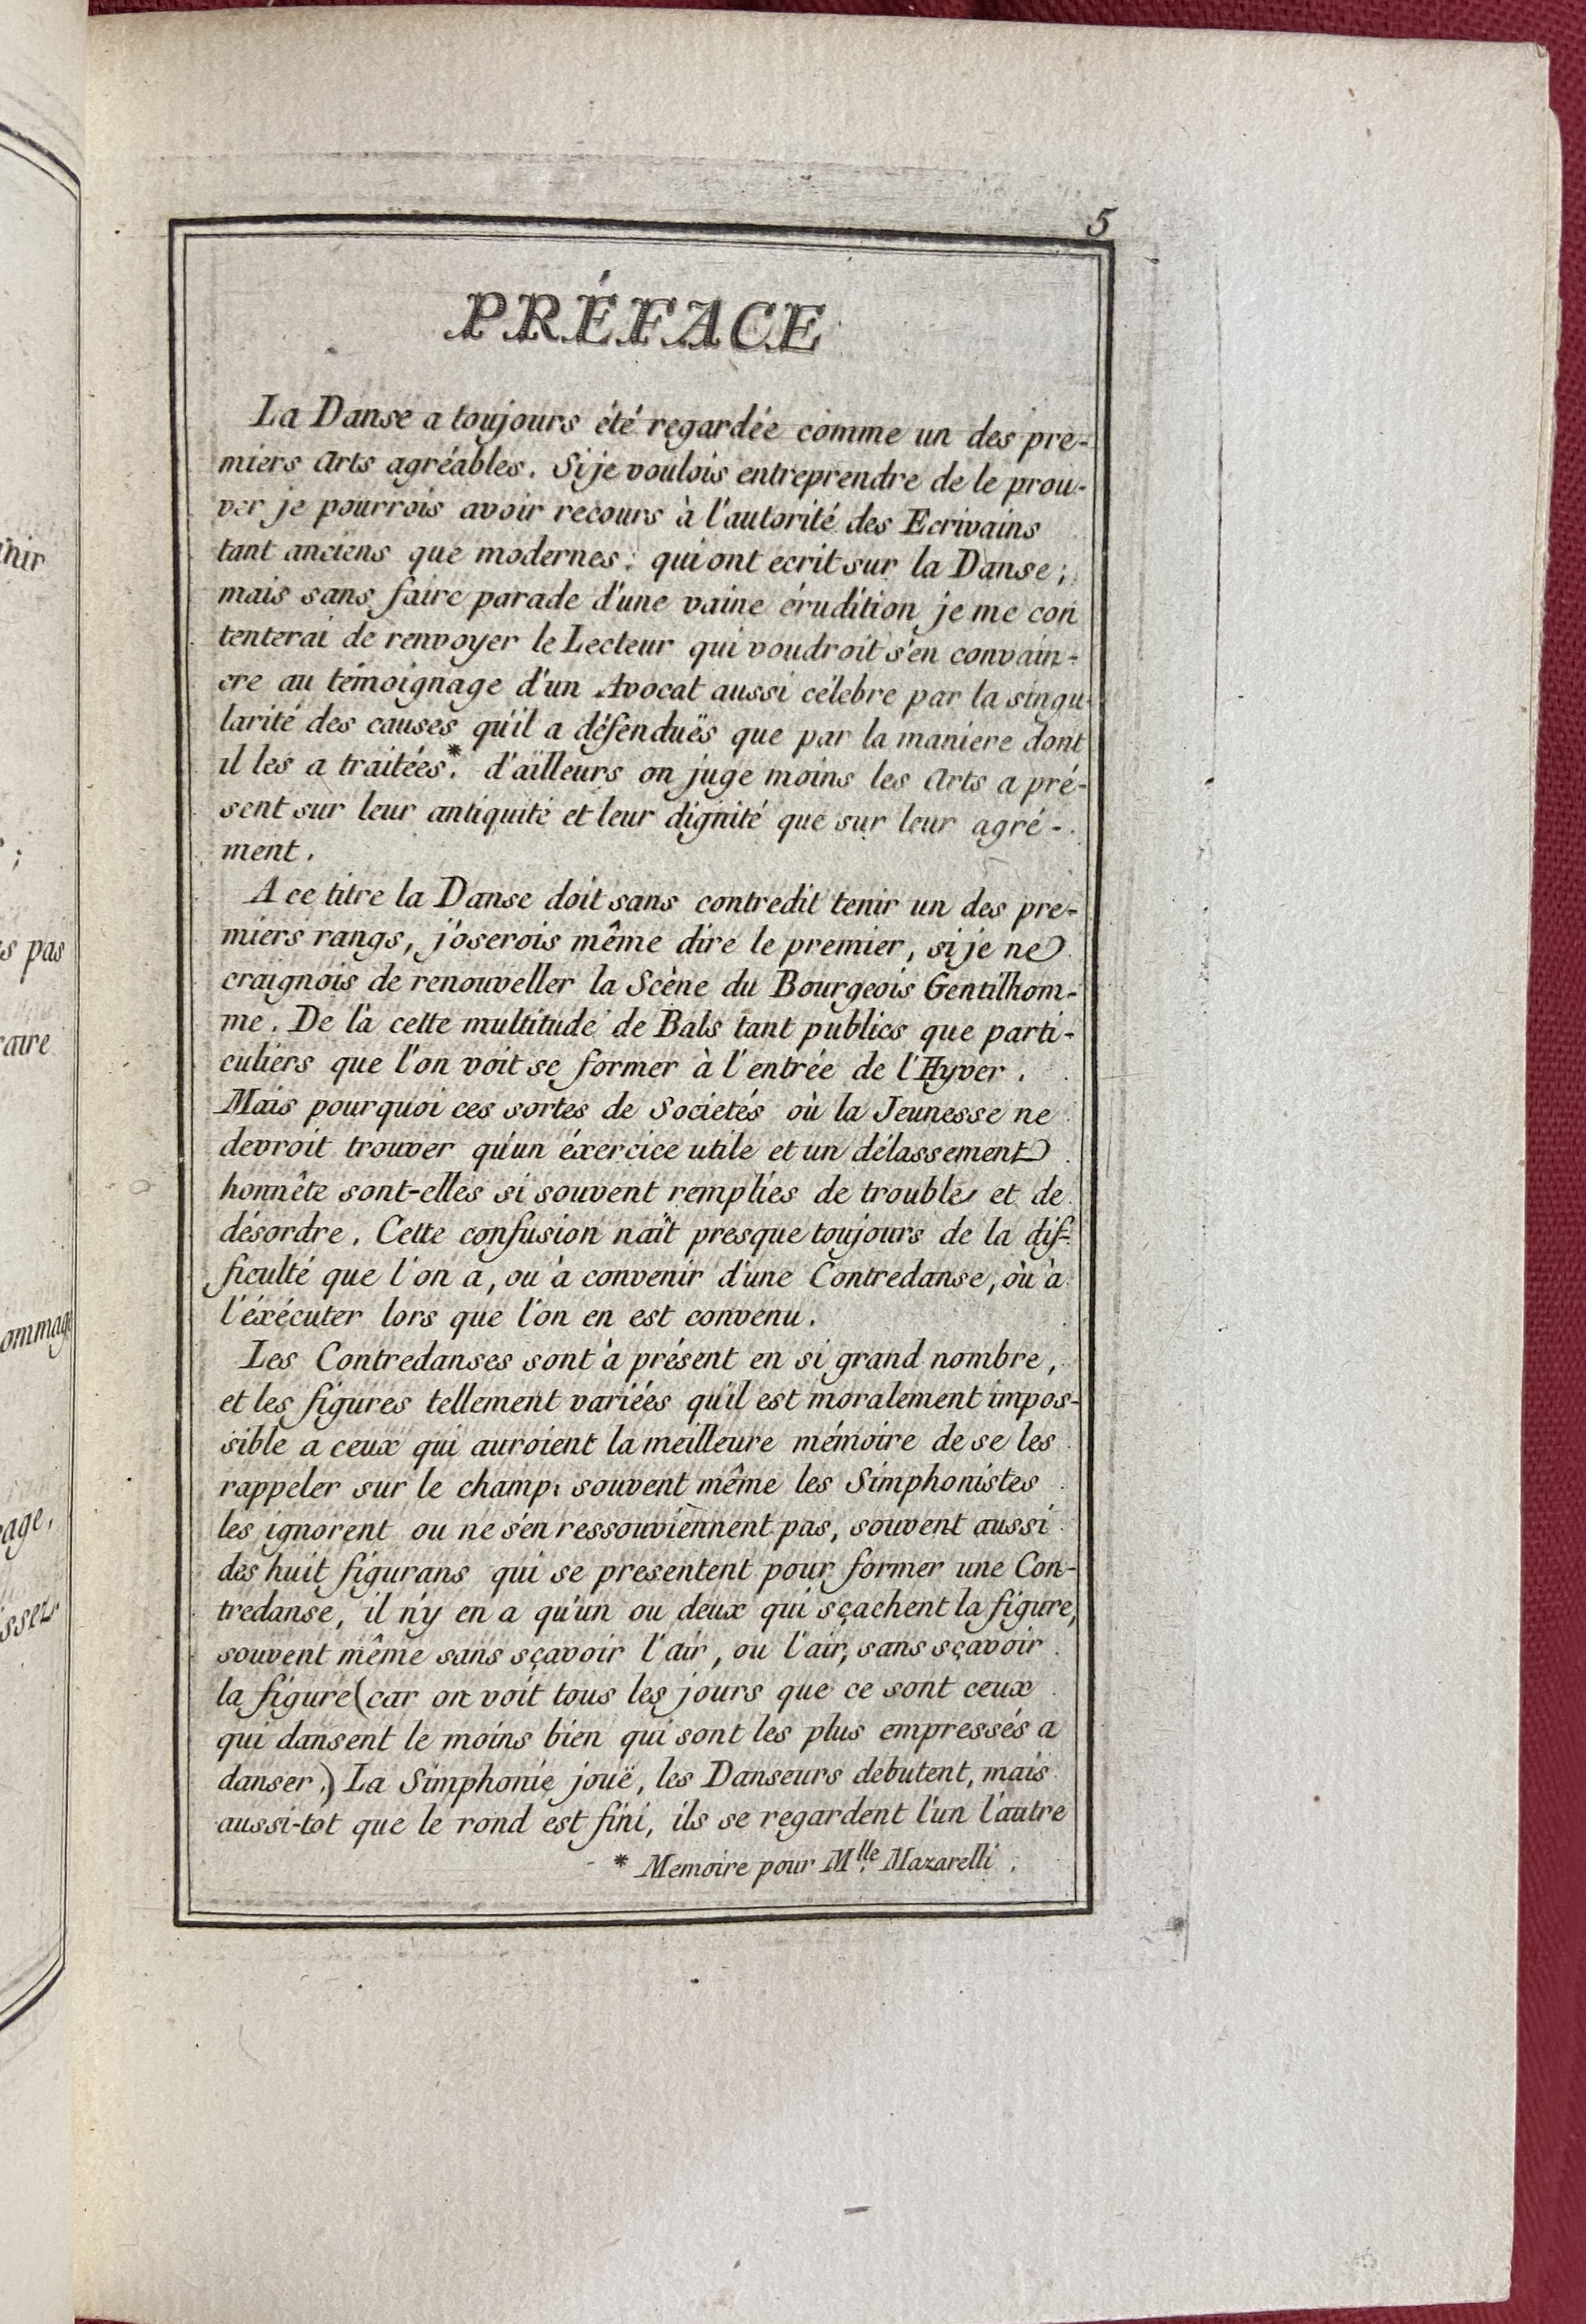 nir
;
s pas
aire
ommage
age,
ssez
5
PRÉFACE
La Danse a toujours été regardée comme un des pre-
miers Arts agréables. Si je voulois entreprendre de le prou-
ver je pourrois avoir recours à l'autorité des Ecrivains
tant anciens que modernes: qui ont ecrit sur la Danse;
mais sans faire parade d'une vaine érudition je me con
tenterai de renvoyer le Lecteur qui voudroit s'en convain-
cre au témoignage d'un Avocat aussi célebre par la singu-
larité des causes qu'il a défenduës que par la maniere dont
il les a traitées*. d'aïlleurs on juge moins les Arts a pré-
sent sur leur antiquité et leur dignité que sur leur agré-
ment.
A ce titre la Danse doit sans contredit tenir un des pre-
miers rangs, j'oserois même dire le premier, si je ne
craignois de renouveller la Scène du Bourgeois Gentilhom-
me. De là cette multitude de Bals tant publics que parti-
culiers que l'on voit se former à l'entrée de l'Hyver.
Mais pourquoi ces sortes de Societés où la Jeunesse ne
devroit trouver qu'un éxercice utile et un délassement
honnête sont-elles si souvent remplies de trouble et de
désordre. Cette confusion naît presque toujours de la dif-
ficulté que l'on a, ou à convenir d'une Contredanse, où à
l'éxécuter lors que l'on en est convenu.
Les Contredanses sont à présent en si grand nombre,
et les figures tellement variées qu'il est moralement impos-
sible a ceux qui auroient la meilleure mémoire de se les
rappeler sur le champ, souvent même les Simphonistes
les ignorent ou ne s'en ressouviennent pas, souvent aussi
des huit figurans qui se presentent pour former une Con-
tredanse, il n'y en a qu'un ou deux qui sçachent la figure,
souvent même sans sçavoir l'air, ou l'air, sans sçavoir
la figure (car on voit tous les jours que ce sont ceux
qui dansent le moins bien qui sont les plus empressés a
danser.) La Simphonie jouë, les Danseurs debutent, mais
aussi-tot que le rond est fini, ils se regardent l'un l'autre
* Memoire pour Mlle. Mazarelli.